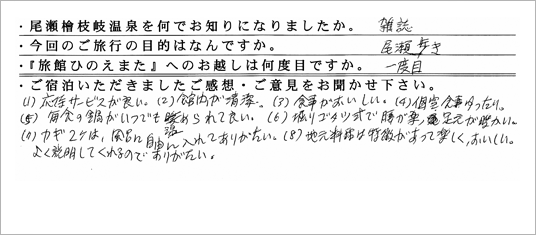 ・尾瀬檜枝岐温泉を何でお知りになりましたか。 雑誌
・今回のご旅行の目的はなんですか。 尾瀬歩き
・『旅館ひのえまた』へのお越しは何度目ですか。 一度目
・ご宿泊いただきましたご感想・ご意見をお聞かせ下さい。
(1) 応待サービスが良い。(2) 館内が清潔。(3) 食事がおいしい。(4) 個室食事ゆったり。
(5) 毎食の鍋がいつでも暖められて良い。(6) 掘りゴタツ式で腰が楽、足元が暖かい。
(7) カギ2ケは、風呂に自由に入れてありがたい。(8) 地元料理は特徴があって楽しく、おいしい。
よく説明してくれるのでありがたい。